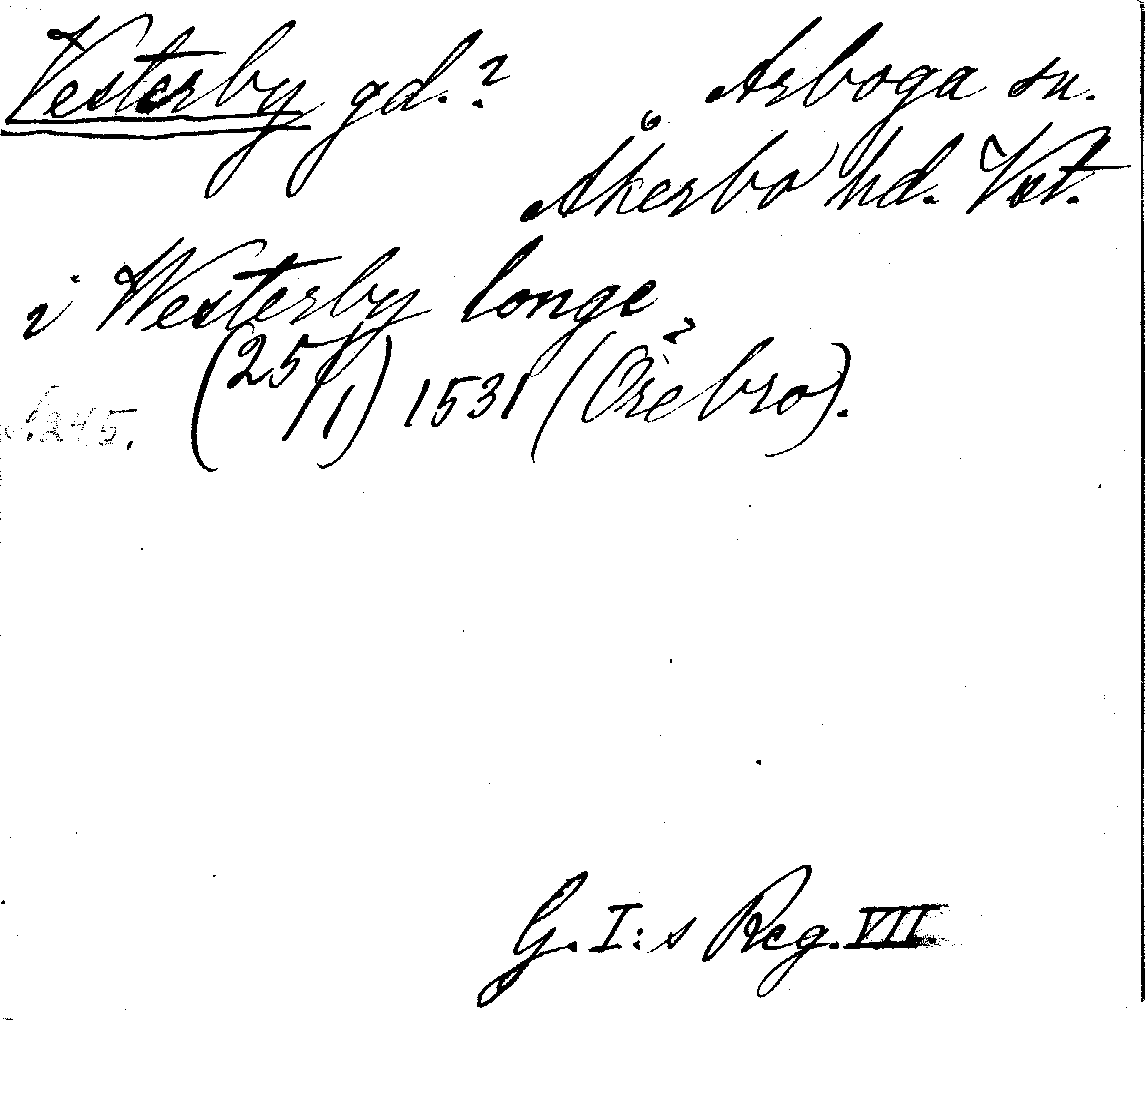 Vesterby gd.? Arboga sn.
Åkerbo hd. Vst.
i Westerby longe
(25/1) 1531 (Örebro).
s. 245.
G. I:s Reg. VII.